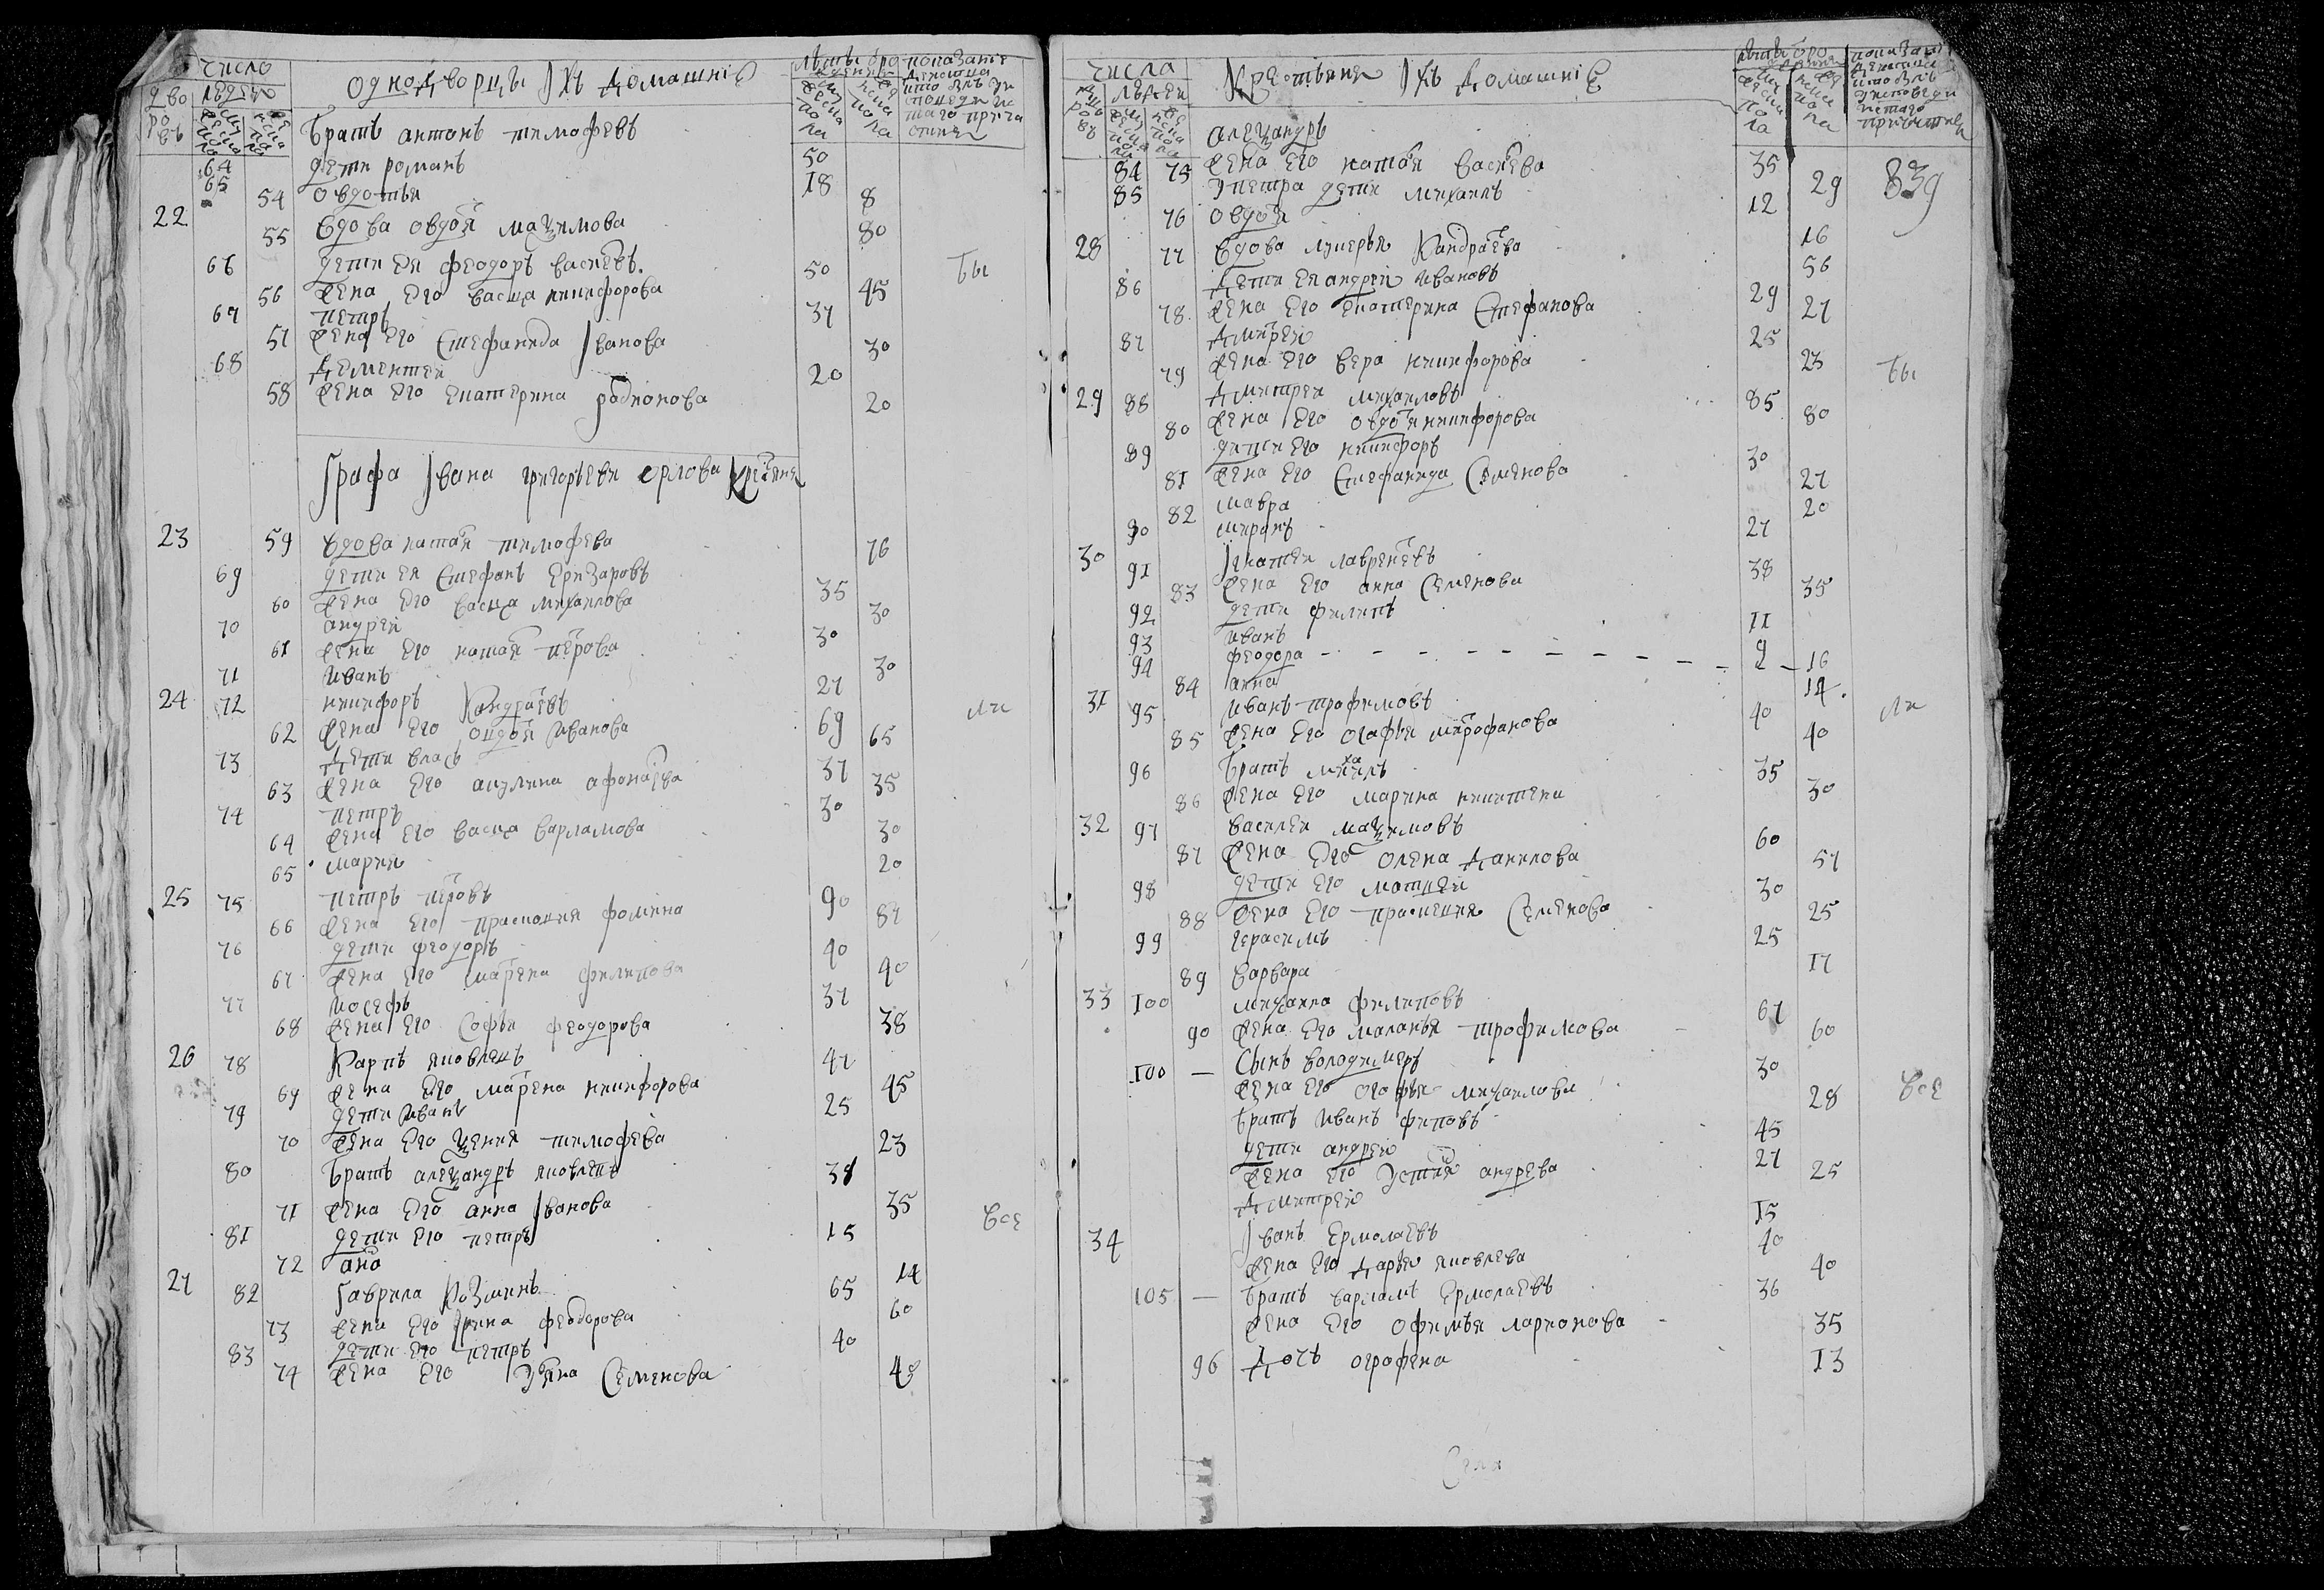 число
одноДворцы Ихъ Домашніе
дво ро въ
людей
лѣты от рожденія
показаніе
Братъ антонъ тимофѣевъ
64 дети романъ 50
65 18
54 овдотья 8
22 55 вдова овдотья маѯимова 80
66 дети ея феодоръ васильевъ 50 бы
56 жена его васса никифорова 45
67 петръ 37
57 жена его Стефанида Иванова 30
68 Дементей 20
58 жена его екатерина родионова 20
Графа Ивана григорьевича орлова крестьяне
23 59 вдова наталья тимофѣева 76
69 дети ея Стефанъ елизаровъ 35
60 жена его васса михаилова 30
70 андрей 30
61 жена его наталья петрова 30
71 иванъ 27
24 72 никифоръ Кандратьевъ 69 ли
62 жена его овдотья иванова 65
73 Дети власъ 37
63 жена его акулина афонасьева 35
74 петръ 30
64 жена его васса варламова 30
65 марья 20
25 75 петръ петровъ 90
66 жена его прасковия фомина 87
76 дети феодоръ 40
67 жена его матрена филипова 40
77 иосефъ 37
68 жена его Софья феодорова 38
26 78 Карпъ яковлевъ 47
69 жена его матрена никифорова 45
79 дети иванъ 25
70 жена его ѯения тимофѣева 23
80 братъ алеѯандръ яковлевъ 38
71 жена его анна Иванова 35 все
81 дети его петръ 15
72 анна 14
27 82 Гаврила Козминъ 65
73 жена его Ирина феодорова 60
83 дети его петръ 40
74 жена его Ульяна Семенова 40
числа
Крестьяне Ихъ Домашніе
людей
алеѯандръ
84 75 жена его наталья васильева 35 29 839
85 у петра дети михаилъ 12
76 овдотья 16
28 77 вдова лукерья Кандратьева 56
86 Дети ея андрей ивановъ 29
78 жена его екатерина Стефанова 27
87 Дмитрей 25
79 жена его вера никифорова 23 бы
29 88 Дмитрей михаиловъ 85
80 жена его овдотья никифорова 80
89 дети его никифоръ 30
81 жена его Стефанида Семенова 27
82 мавра 20
90 миронъ 27
30 91 Игнатей лаврентьевъ 38
83 жена его анна Семенова 35
92 дети филипъ 11
93 иванъ 9
94 феодора 2 16
84 анна 14
31 95 иванъ трофимовъ 40 ли
85 жена его огафья митрофанова 40
96 братъ михаилъ 35
86 жена его марина никитина 30
32 97 василей маѯимовъ 60
87 жена его олена Данилова 57
98 дети его матвей 30
88 жена его прасковия Семенова 25
99 герасимъ 25
89 варвара 17
33 100 михаила филиповъ 67
90 жена его маланья трофимова 60
100 — Сынъ володимеръ 30
жена его огофья михаилова 28 все
братъ иванъ филповъ 45
дети андрей 27
жена его Устинья андреева 25
Дмитрей 15
34 Иванъ ермолаевъ 40
жена его Дарья яковлева 40
105 — братъ варламъ ермолаевъ 36
жена его офимья ларионова 35
96 Дочь ографена 13
Села